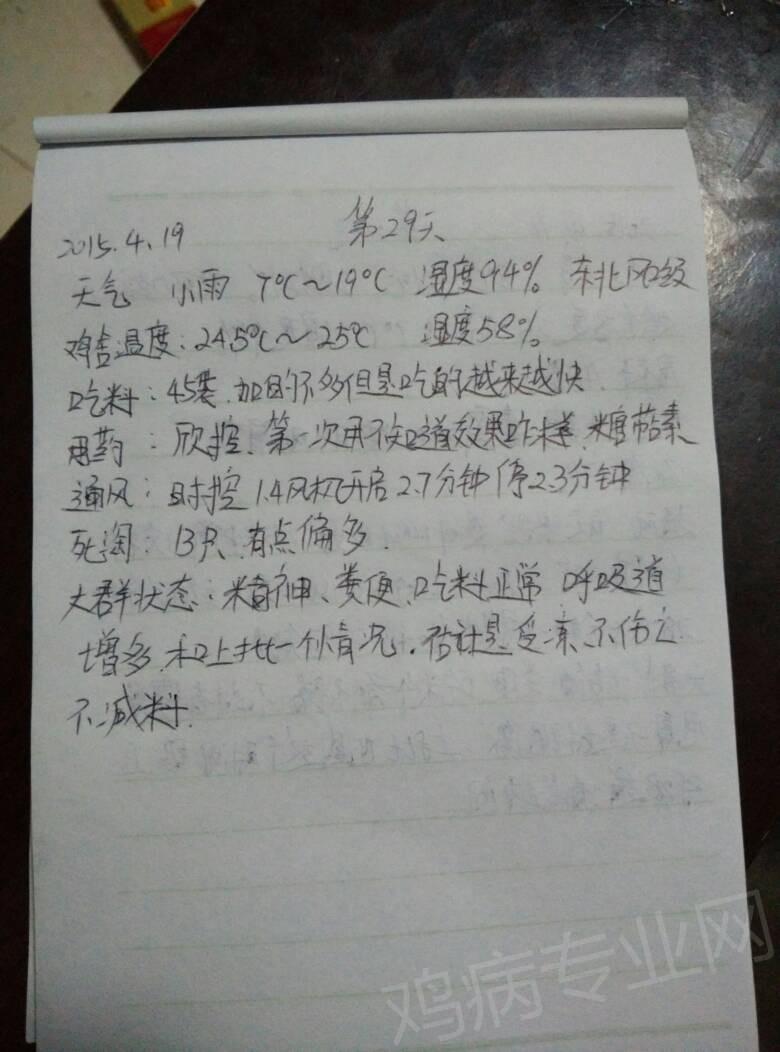 第29天
2015.4.19
天气 小雨 7℃～19℃ 湿度94% 东北风 级
鸡舍温度:24.5℃～25℃ 湿度58%
吃料:45袋.加的不多但是吃的越来越快.
用药:欣控、第一次用不知道效果咋样.
通风:时控1.4风机开启2.7分钟停2.3分钟
死淘:13只.有点偏多.
大群状态:精神、粪便、吃料正常 呼吸道
增多.和上批一个情况.估计是受凉.不伤亡
不减料.
鸡病专业网